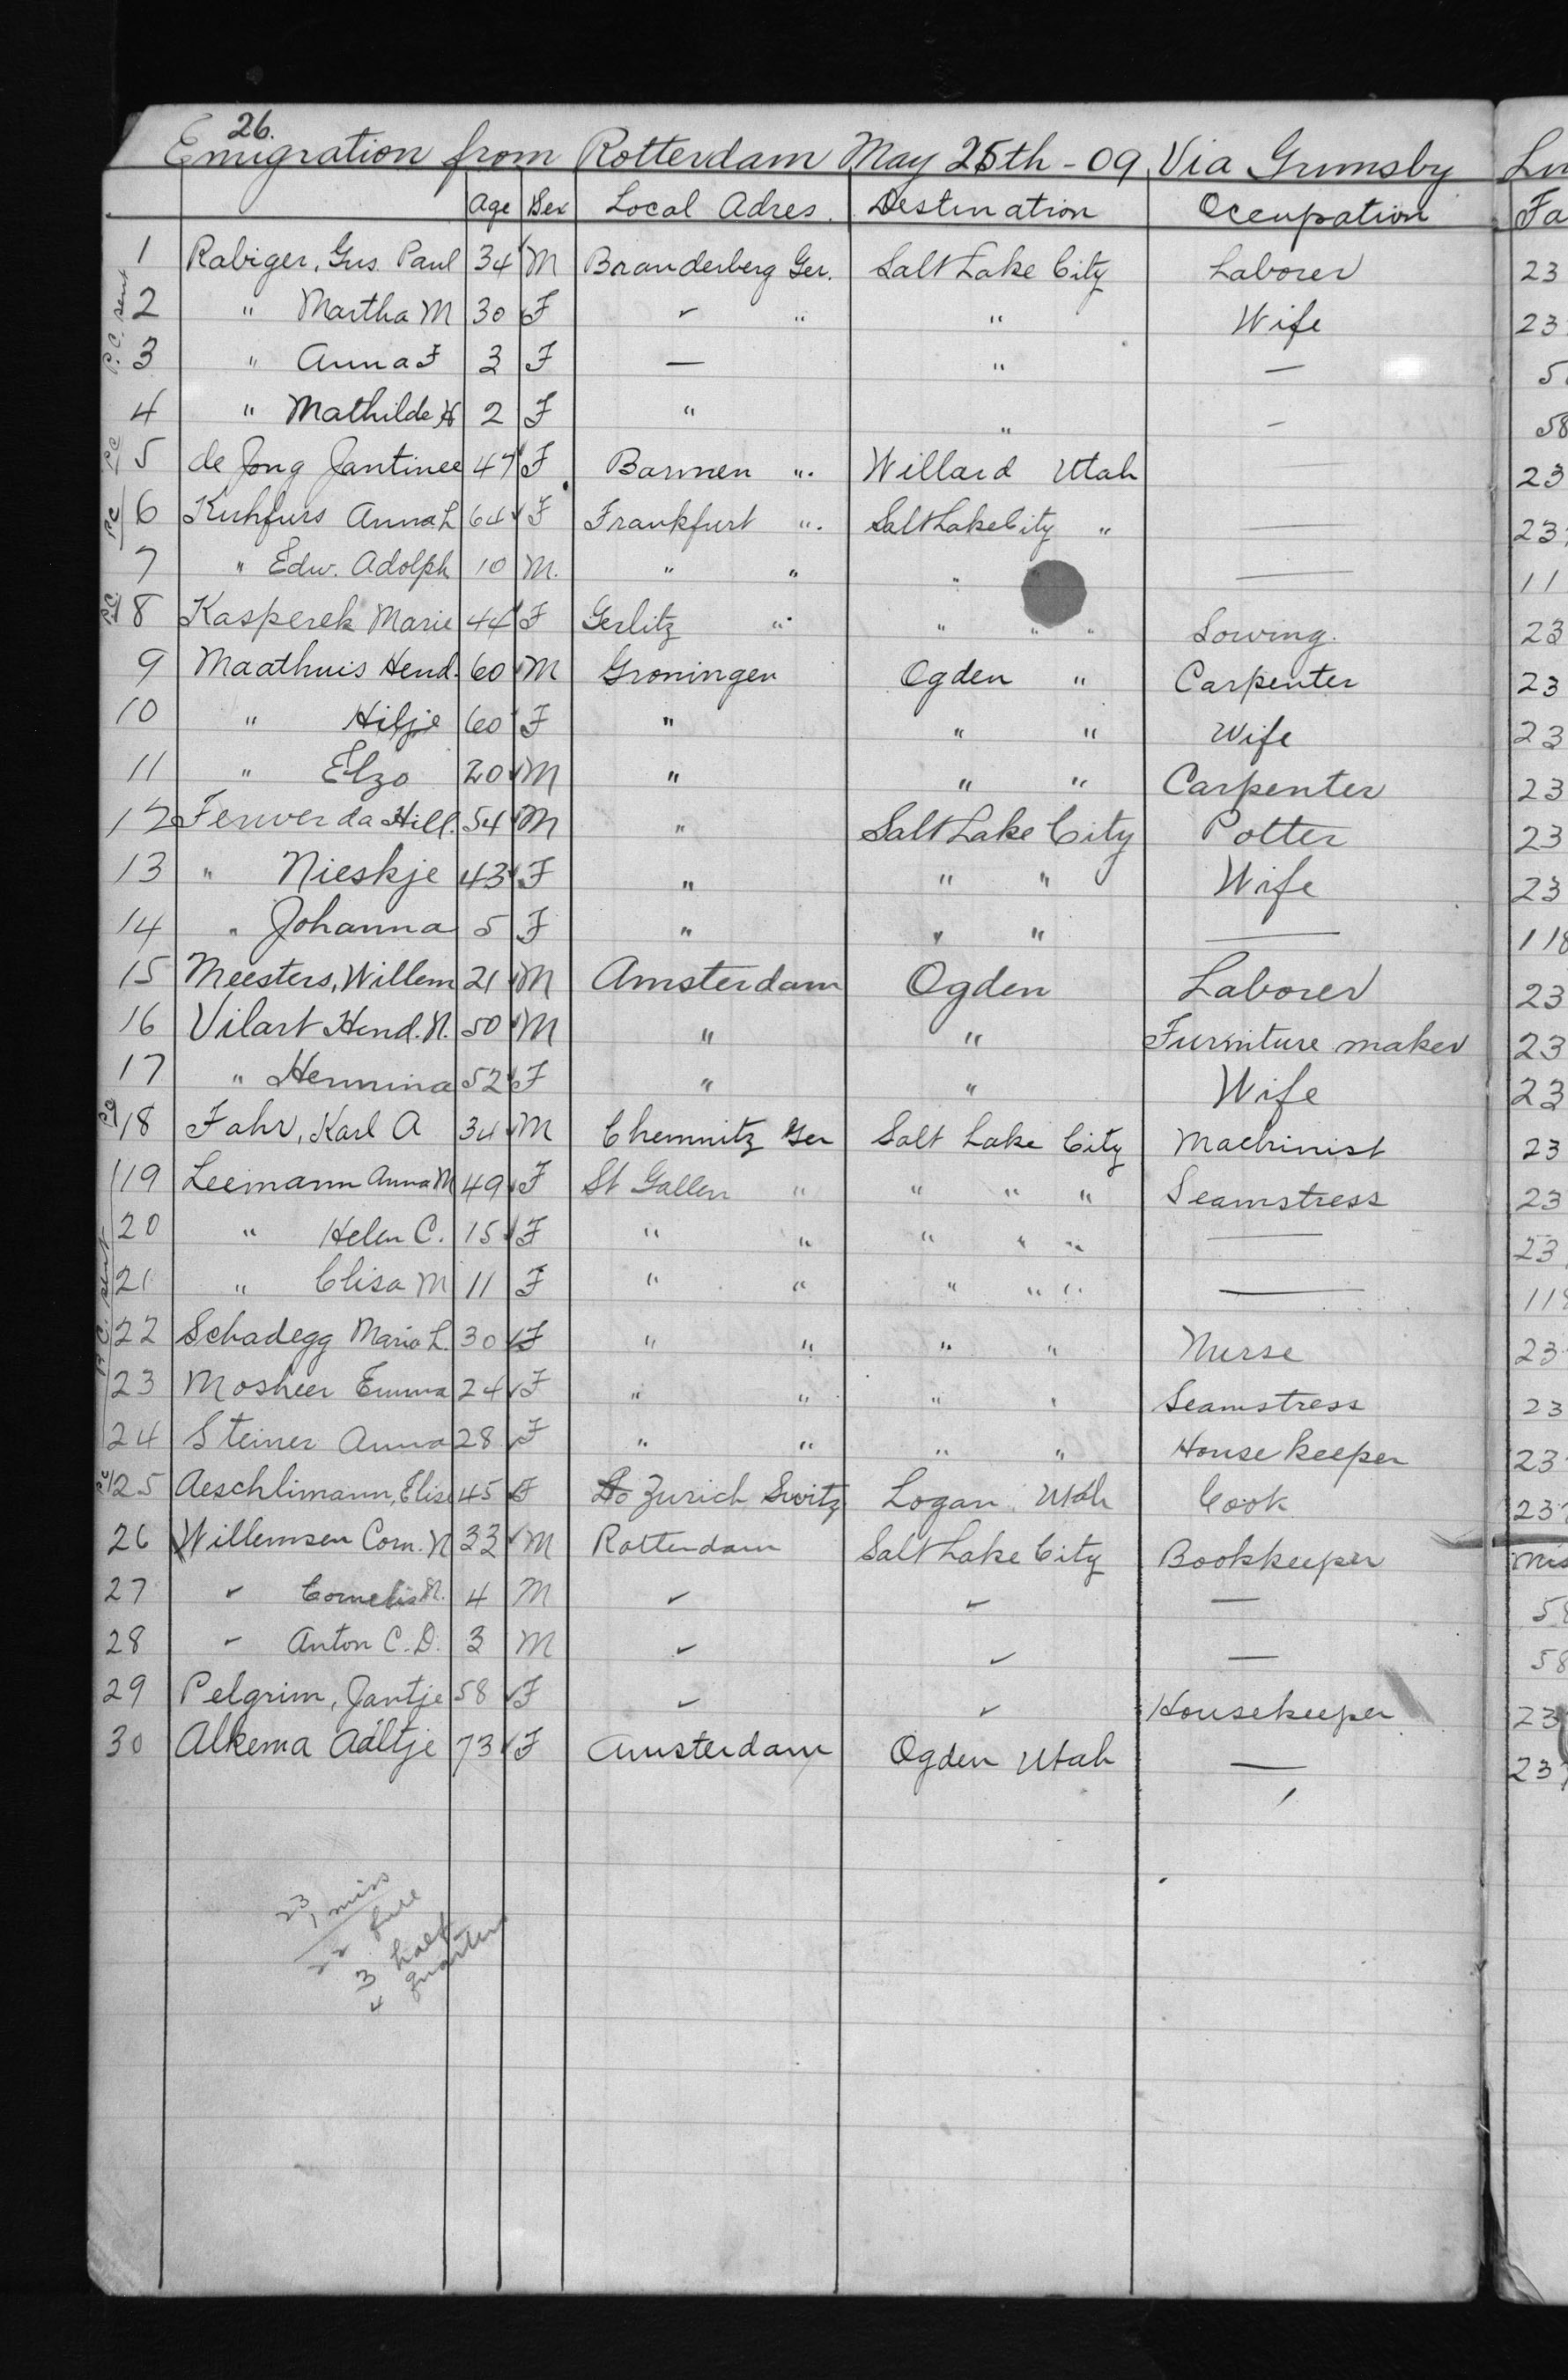 26.
Emigration from Rotterdam May 25th - 09 Via Grimsby
Age Sex Local Adres. Destination Occupation Fa
1 Rabiger, Gus. Paul 34 M Branderberg Ger. Salt Lake City Laborer 23
P.C. sent
2 " Martha M 30 F " " " Wife 23
3 " Anna F 3 F — " —
4 " Mathilde H 2 F " " — 58
PC 5 de Jong Jantinee 47 F Barmen " Willard Utah 23
PC 6 Kuhfurs Anna L 64 F Frankfurt " Salt Lake City " — 23
7 " Edw. Adolph 10 M. " " " — 11
PC 8 Kasperek Marie 44 F Gerlitz " " " " Sowing. 23
9 Maathuis Hend. 60 M Groningen Ogden " Carpenter 23
10 " Hilje 60 F " " " Wife 23
11 " Elzo 20 M " " " Carpenter 23
12 Ferwerda Hill. 54 M " Salt Lake City Potter 23
13 " Nieskje 43 F " " " Wife 23
14 " Johanna 5 F " " " — 118
15 Meesters, Willem 21 M Amsterdam Ogden Laborer 23
16 Vilart Hend. N. 50 M " " Furniture maker 23
17 " Hermina 52 F " " Wife 23
PC 18 Fahr, Karl A 34 M Chemnitz Ger Salt Lake City Machinist 23
19 Leemann Anna M 49 F St Gallen " " " " Seamstress 23
20 " Helen C. 15 F " " " " " — 23
21 " Elisa M 11 F " " " " " — 118
P.C. sent
22 Schadegg Maria L. 30 F " " " " Nurse 23
23 Mosheer Emma 24 F " " " " Seamstress 23
24 Steiner Anna 28 F " " " " House keeper 23
PC 25 Aeschlimann, Elise 45 F Zurich Switz Logan Utah Cook 23
26 Willemsen Corn. N 33 M Rotterdam Salt Lake City Bookkeeper Mis
27 " Cornelis N. 4 M " " — 58
28 " Anton C. D. 3 M " " — 58
29 Pelgrim, Jantje 58 F " " Housekeeper 23
30 Alkema Adltje 73 F Amsterdam Ogden Utah — 237
23
1 miss
22 full
3 half
4 quarters